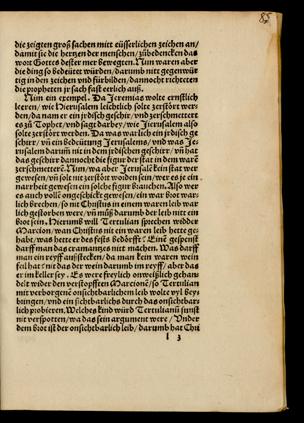 85
die zeigten groß sachen mitt eüsserlichen zeichen an/
damit sie die hertzen der menschen/ zůbedencken das
wort Gottes dester mer bewegten. Nun waren aber
die ding so bedeütet würden/ darumb nitt gegenwür
tig in den zeichen vnd fürbilden/ dannocht richteten
die propheten jr sach fast eerlich auß.
Nim ein exempel. Da Jeremias wolte ernstlich
leeren/ wie Hierusalem leichtlich solte zerstört wer-
den/ da nam er ein jrdisch geschir/ vnd zerschmettert
es zů Tophet/ vnd sagt darbey/ wie Jerusalem also
solte zerstört werden. Da was warlich ein jrdisch ge
schirr/ vñ ein bedeütung Jerusalems/ vnd was Je-
rusalem darumb nit in dem jrdischen geschirr/ vñ hat
das geschirr dannocht die figur der stat in dem warẽ
zerschmetterẽ. Nun/ wa aber Jerusalẽ kein stat wer
gewesen/ vñ solt nit zerstört worden sein/ wer es ein
narrheit gewesen ein solche figur brauchen. Also wer
es auch vollẽ ongeschickt gewesen/ ein war brot war
lich brechen/ so nit Christus in einem waren leib war
lich gestorben were/ vñ můß darumb der leib nitt ein
brot sein. Hierumb will Tertulian sprechen widder
Marcion/ wan Christus nit ein waren leib hette ge-
habt/ was hette er des fests bedörfft? Einẽ gespenst
darff man das cramantzes nitt machen. Was darff
man ein reyff außstecken/ da man kein waren wein
feil hat? nit das der wein darumb im reyff/ aber das
er im keller sey. Es were freylich onweißlich gehan-
delt wider den verstopfften Marcionẽ/ so Tertulian
mit verborgenẽ onsichtbarlichem leib wolte wyl bey-
bringen/ vnd ein sichtbarlichs durch das onsichtbar-
lich probieren. Welches kind würd Tertulianũ sunst
nit verspotten/ wa das sein argument were/ Vnder
dem brot ist der onsichtbarlich leib/ darumb hat Chri
l 3